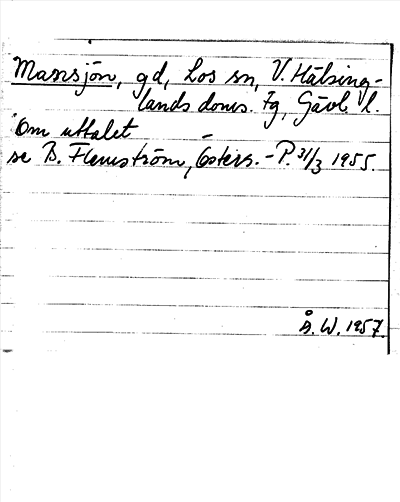 Massjön, gd, Los sn, V. Hälsing-
lands doms. fg, Gävl. l.
Om uttalet
se B. Flemström, Östers. - P. 31/3 1955.
Å. W. 1957.